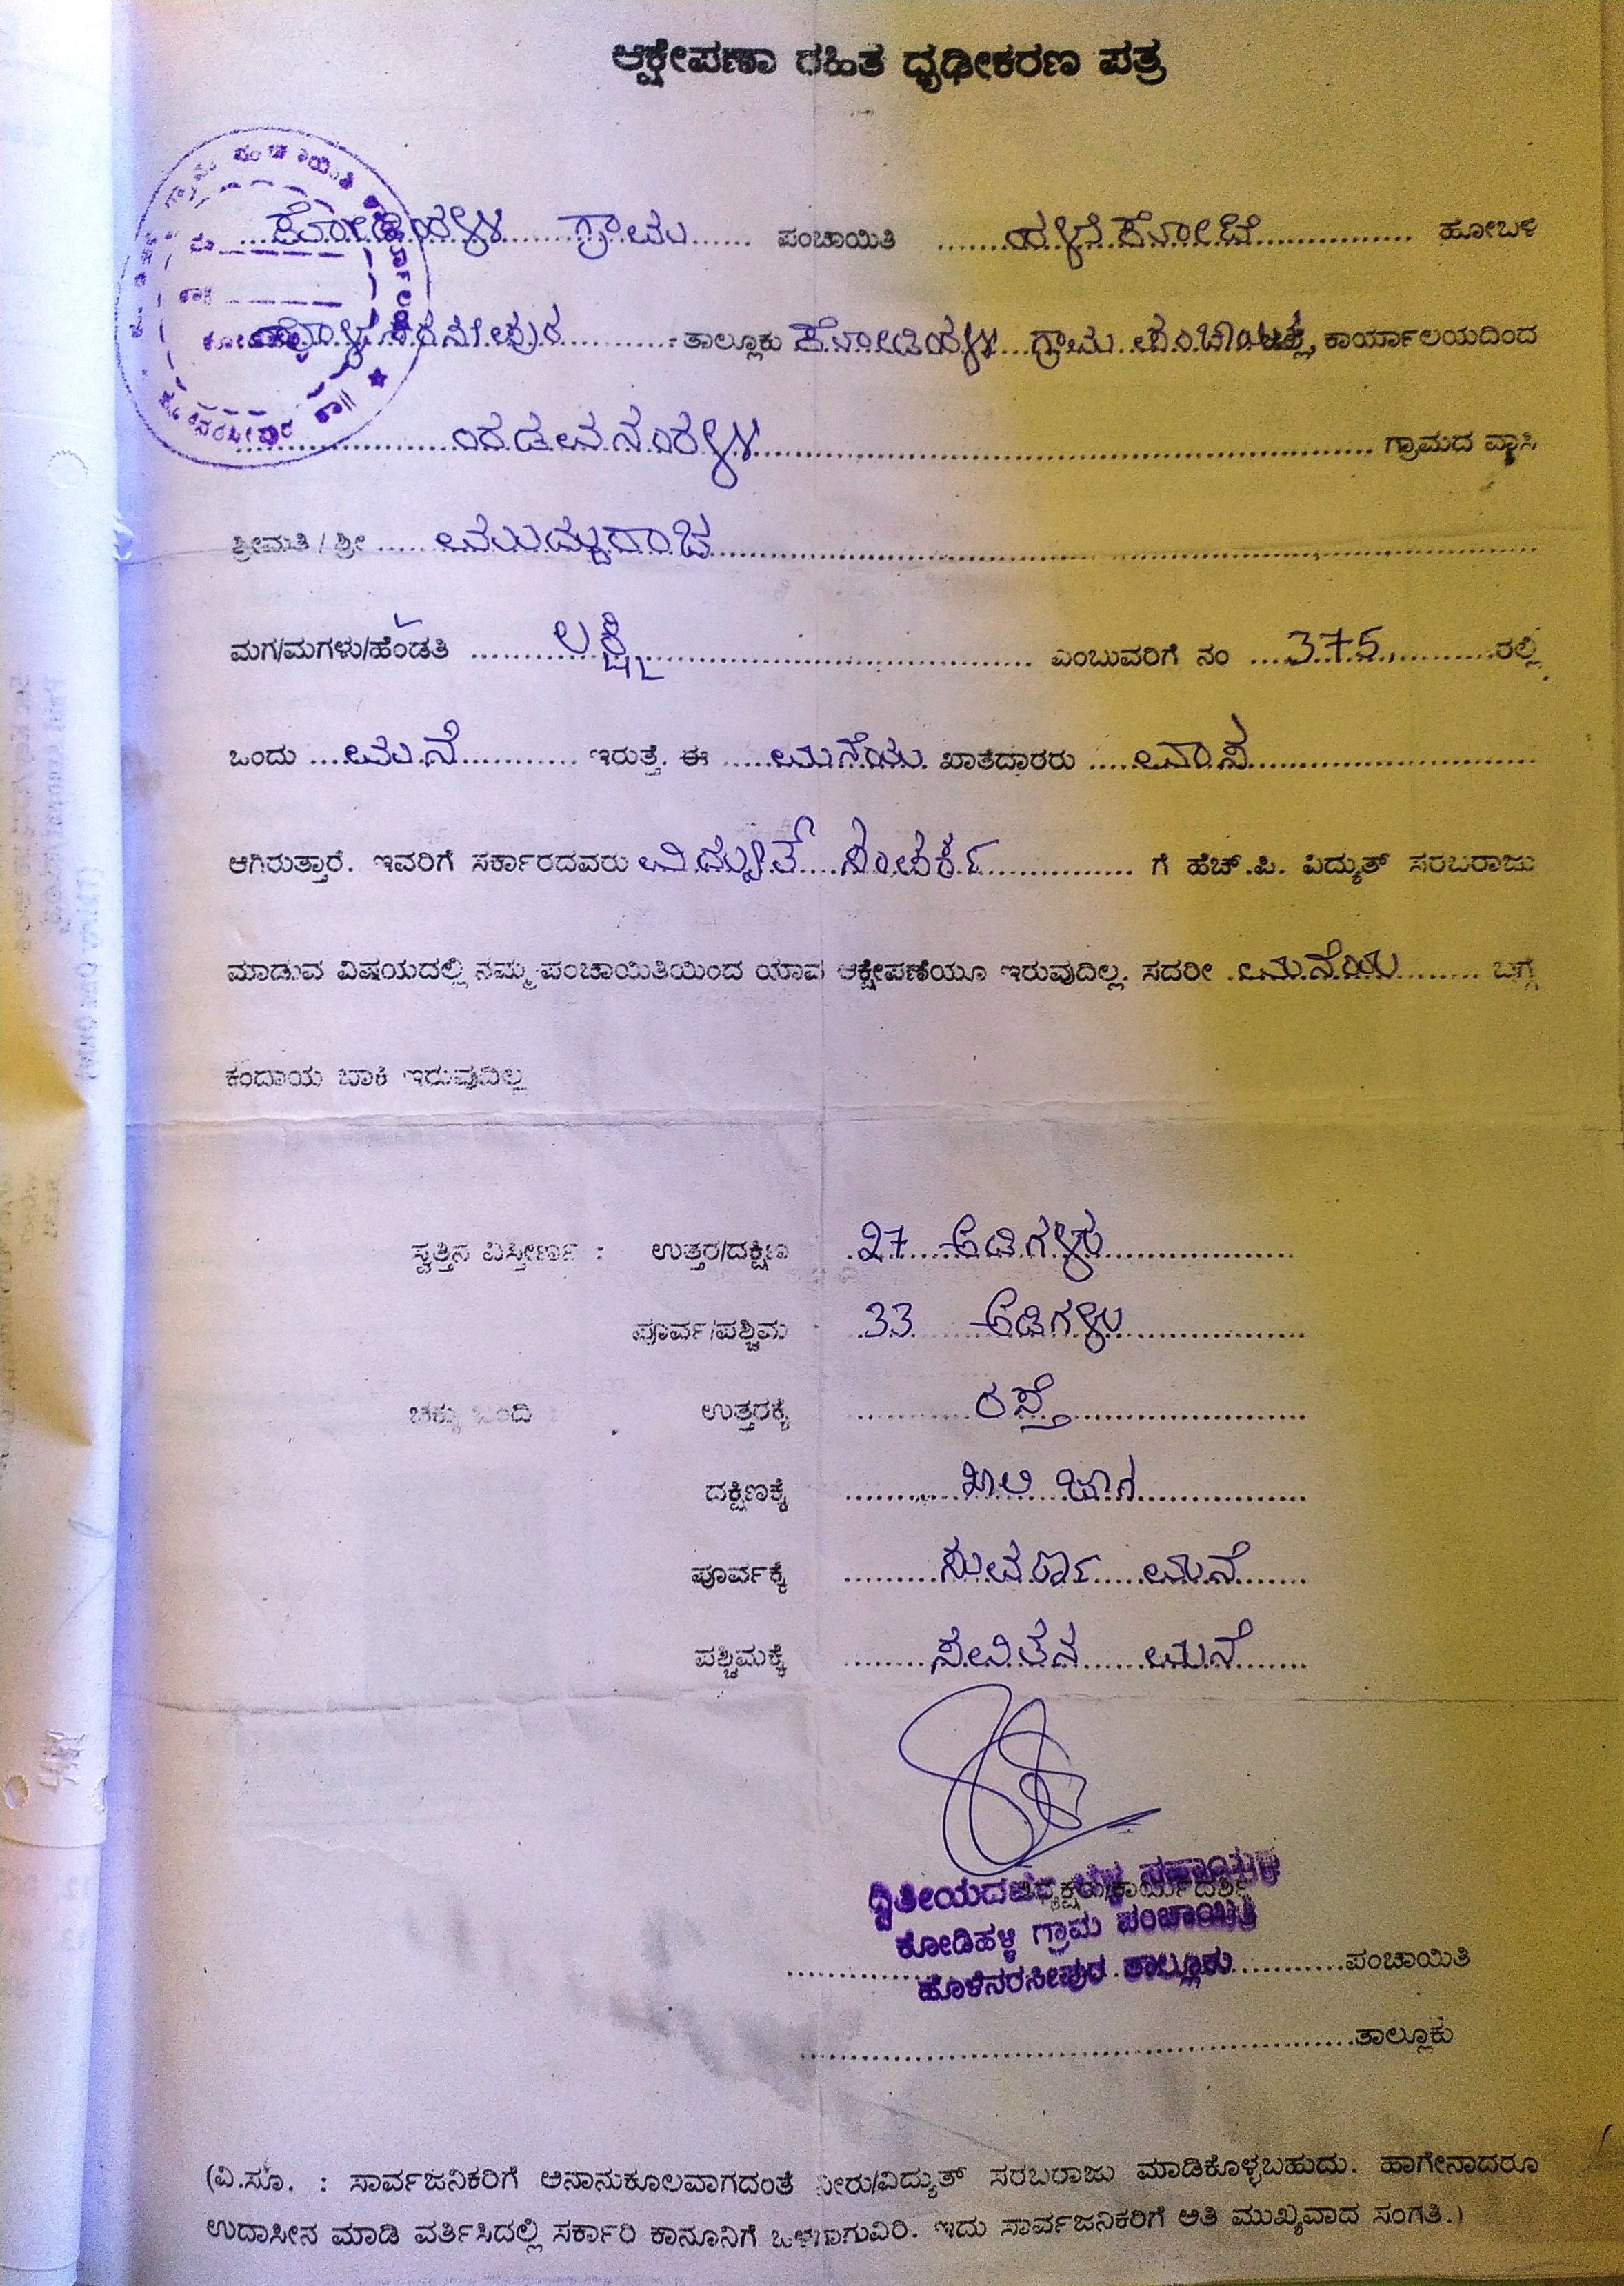 ಆಕ್ಷೇಪಣಾ ರಹಿತ ಧೃಢೀಕರಣ ಪತ್ರ
ಕೋಡಿಹಳ್ಳಿ ಗ್ರಾಮ ಪಂಚಾಯಿತಿ ಹಳೇಕೋಟೆ ಹೋಬಳಿ
ಹೊಳೆನರಸೀಪುರ ತಾಲ್ಲೂಕು ಕೋಡಿಹಳ್ಳಿ ಗ್ರಾಮ ಪಂಚಾಯಿತಿ ಕಾರ್ಯಾಲಯದಿಂದ
ಗ್ರಾಮದ ವಾಸಿ
ಶ್ರೀಮತಿ / ಶ್ರೀ ಮಯಮ್ಮರಾಜ
ಮಗ/ಮಗಳು/ಹೆಂಡತಿ ಲಕ್ಷ್ಮಿ ಎಂಬುವರಿಗೆ ನಂ 375 ರಲ್ಲಿ
ಒಂದು ಮನೆ ಇರುತ್ತೆ. ಈ ಮನೆಯ ಖಾತೆದಾರರು ವಾಸ
ಆಗಿರುತ್ತಾರೆ. ಇವರಿಗೆ ಸರ್ಕಾರದವರು ವಿದ್ಯುತ್ ಸಂಪರ್ಕ ಗೆ ಹೆಚ್.ಪಿ. ವಿದ್ಯುತ್ ಸರಬರಾಜು
ಮಾಡುವ ವಿಷಯದಲ್ಲಿ ನಮ್ಮ ಪಂಚಾಯಿತಿಯಿಂದ ಯಾವ ಆಕ್ಷೇಪಣೆಯೂ ಇರುವುದಿಲ್ಲ. ಸದರೀ ಮನೆಯ ಬಗ್ಗೆ
ಕಂದಾಯ ಬಾಕಿ ಇರುವುದಿಲ್ಲ
ಸ್ವತ್ತಿನ ವಿಸ್ತೀರ್ಣ : ಉತ್ತರ/ದಕ್ಷಿಣ 27 ಅಡಿಗಳು
ಪೂರ್ವ/ಪಶ್ಚಿಮ 33 ಅಡಿಗಳು
ಚಕ್ಕು ಬಂದಿ : ಉತ್ತರಕ್ಕೆ ರಸ್ತೆ
ದಕ್ಷಿಣಕ್ಕೆ ಖಾಲಿ ಜಾಗ
ಪೂರ್ವಕ್ಕೆ ಸುವರ್ಣ ಮನೆ
ಪಶ್ಚಿಮಕ್ಕೆ ಸವಿತನ ಮನೆ
ಅಧ್ಯಕ್ಷರು/ಕಾರ್ಯದರ್ಶಿ
ದ್ವಿತೀಯದರ್ಜೆ ಲೆಕ್ಕ ಸಹಾಯಕ
ಕೋಡಿಹಳ್ಳಿ ಗ್ರಾಮ ಪಂಚಾಯಿತಿ
ಹೊಳೆನರಸೀಪುರ ತಾಲ್ಲೂಕು
ಪಂಚಾಯಿತಿ
ತಾಲ್ಲೂಕು
(ವಿ.ಸೂ. : ಸಾರ್ವಜನಿಕರಿಗೆ ಅನಾನುಕೂಲವಾಗದಂತೆ ನೀರು/ವಿದ್ಯುತ್ ಸರಬರಾಜು ಮಾಡಿಕೊಳ್ಳಬಹುದು. ಹಾಗೇನಾದರೂ
ಉದಾಸೀನ ಮಾಡಿ ವರ್ತಿಸಿದಲ್ಲಿ ಸರ್ಕಾರಿ ಕಾನೂನಿಗೆ ಒಳಗಾಗುವಿರಿ. ಇದು ಸಾರ್ವಜನಿಕರಿಗೆ ಅತಿ ಮುಖ್ಯವಾದ ಸಂಗತಿ.)